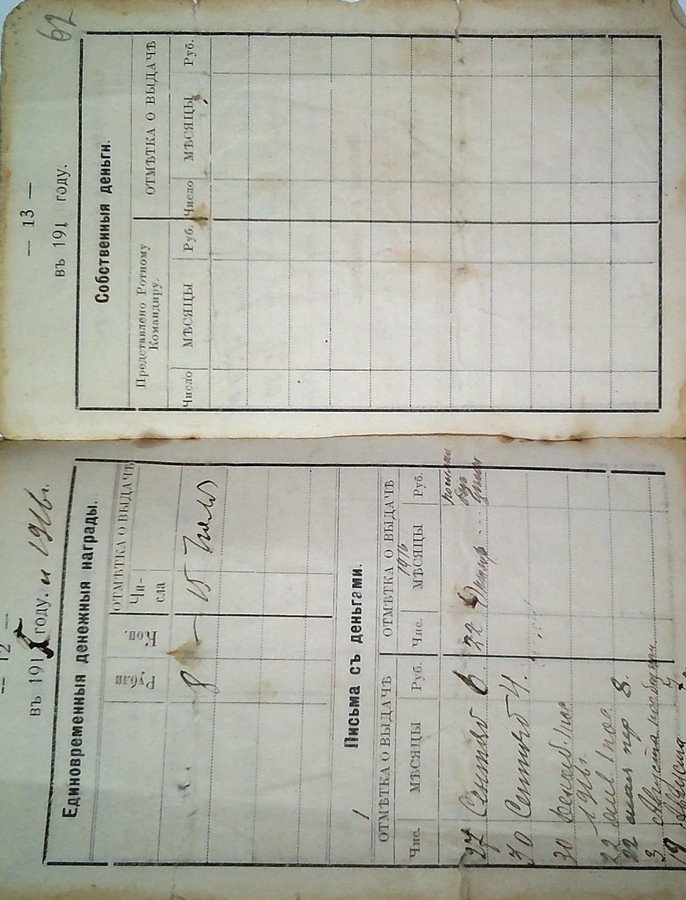 — 12 —
въ 1915 году. и 1916 г.
Единовременныя денежныя награды.
ОТМѢТКА О ВЫДАЧѢ
Рубли Коп. Чи-
сла
8 — 15
Письма съ деньгами.
ОТМѢТКА О ВЫДАЧѢ ОТМѢТКА О ВЫДАЧѢ
1916
Чис. МѢСЯЦЫ Руб. Чис. МѢСЯЦЫ Руб.
27 Сентяб 6 22
30 Сентяб 4.
30 Декаб. 1 пос
1916 г.
22 янв. 1 пос.
22 мая пер 8.
3 августа
19 августа
62
— 13 —
въ 191 году.
Собственныя деньги.
Представлено Ротному
Командиру.
ОТМѢТКА О ВЫДАЧѢ
Число МѢСЯЦЫ Руб. Число МѢСЯЦЫ Руб.